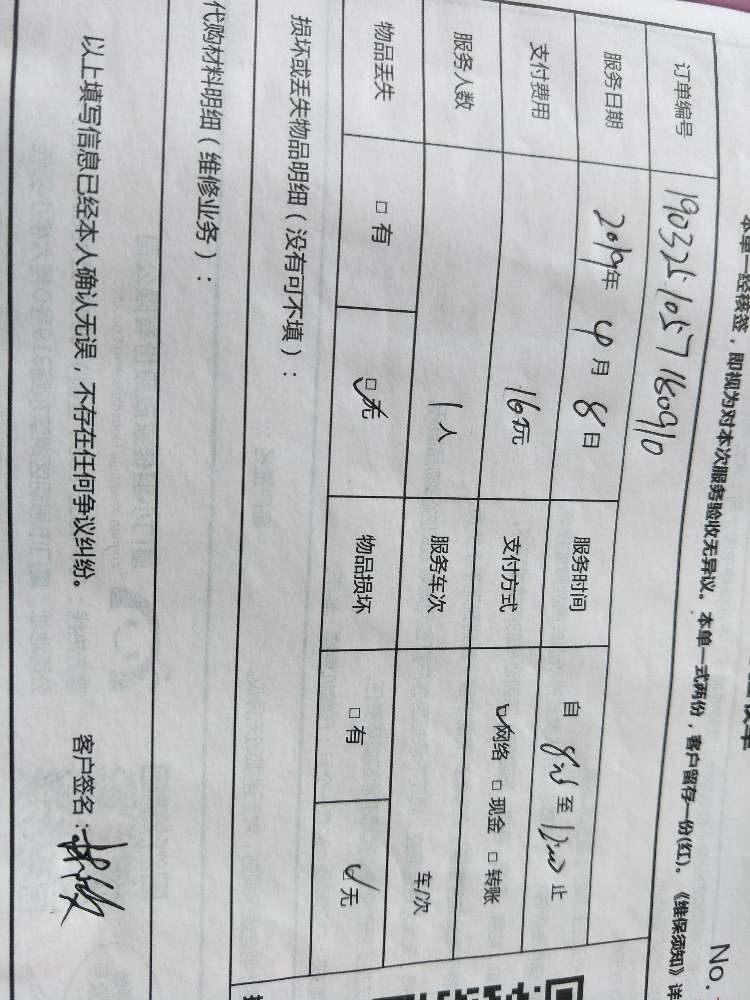 No.
本单一经核签，即视为对本次服务验收无异议。本单一式两份，客户留存一份(红)。《维保须知》详
订单编号 19032510571180910
服务日期 2019年 4月 8日 服务时间 自 至 止
支付费用 160元 支付方式 ☑网络 □现金 □转账
服务人数 1人 服务车次 车/次
物品丢失 □有 ☑无 物品损坏 □有 ☑无
损坏或丢失物品明细（没有可不填）：
代购材料明细（维修业务）：
以上填写信息已经本人确认无误，不存在任何争议纠纷。 客户签名：